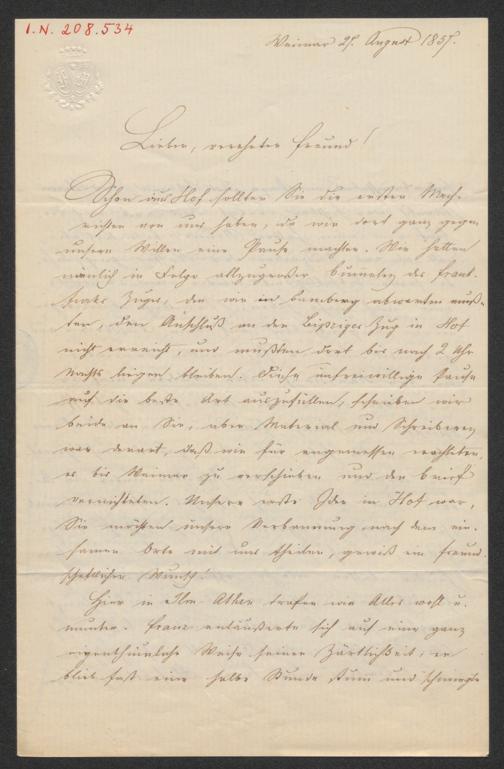 I.N. 208.534
Weimar 27. August 1857.
Lieber, verehrter Freund!
Schon aus Hof sollten Sie die ersten Nach-
richten von uns haben, da wir dort ganz gegen
unsern Willen eine Pause machten. Wir hatten
nämlich in Folge allzugroßer des Frank-
furter Zuges, den wir in Bamberg abwarten muß-
ten, den Anschluß an den Leipziger Zug in Hof
nicht erreicht, und mußten dort bis nach 2 Uhr
Nachts liegen bleiben. Diese unfreiwillige Pause
auf die beste Art auszufüllen, schrieben wir
beide an Sie, aber Material und Schreiberey
war derart, daß wir für angemessen erachteten,
es bis Weimar zu verschieben und den Brief
vernichteten. Unsere erste Idee in Hof war,
Sie möchten unsere Verbannung nach dem ein-
samen Orte mit uns theilen, gewiß ein freund-
schaftlicher Wunsch!
Hier in Ilm Athen trafen wir Alles wohl u.
munter. Franz entäußerte sich auf eine ganz
eigenthümliche Weise seiner Zärtlichkeit; er
blieb fast eine halbe Stunde stumm und schmiegte